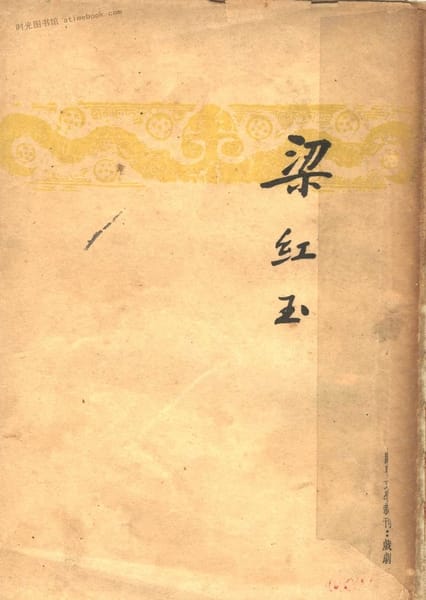 时光图书馆 atimebook.com
梁红玉
刊：戏剧